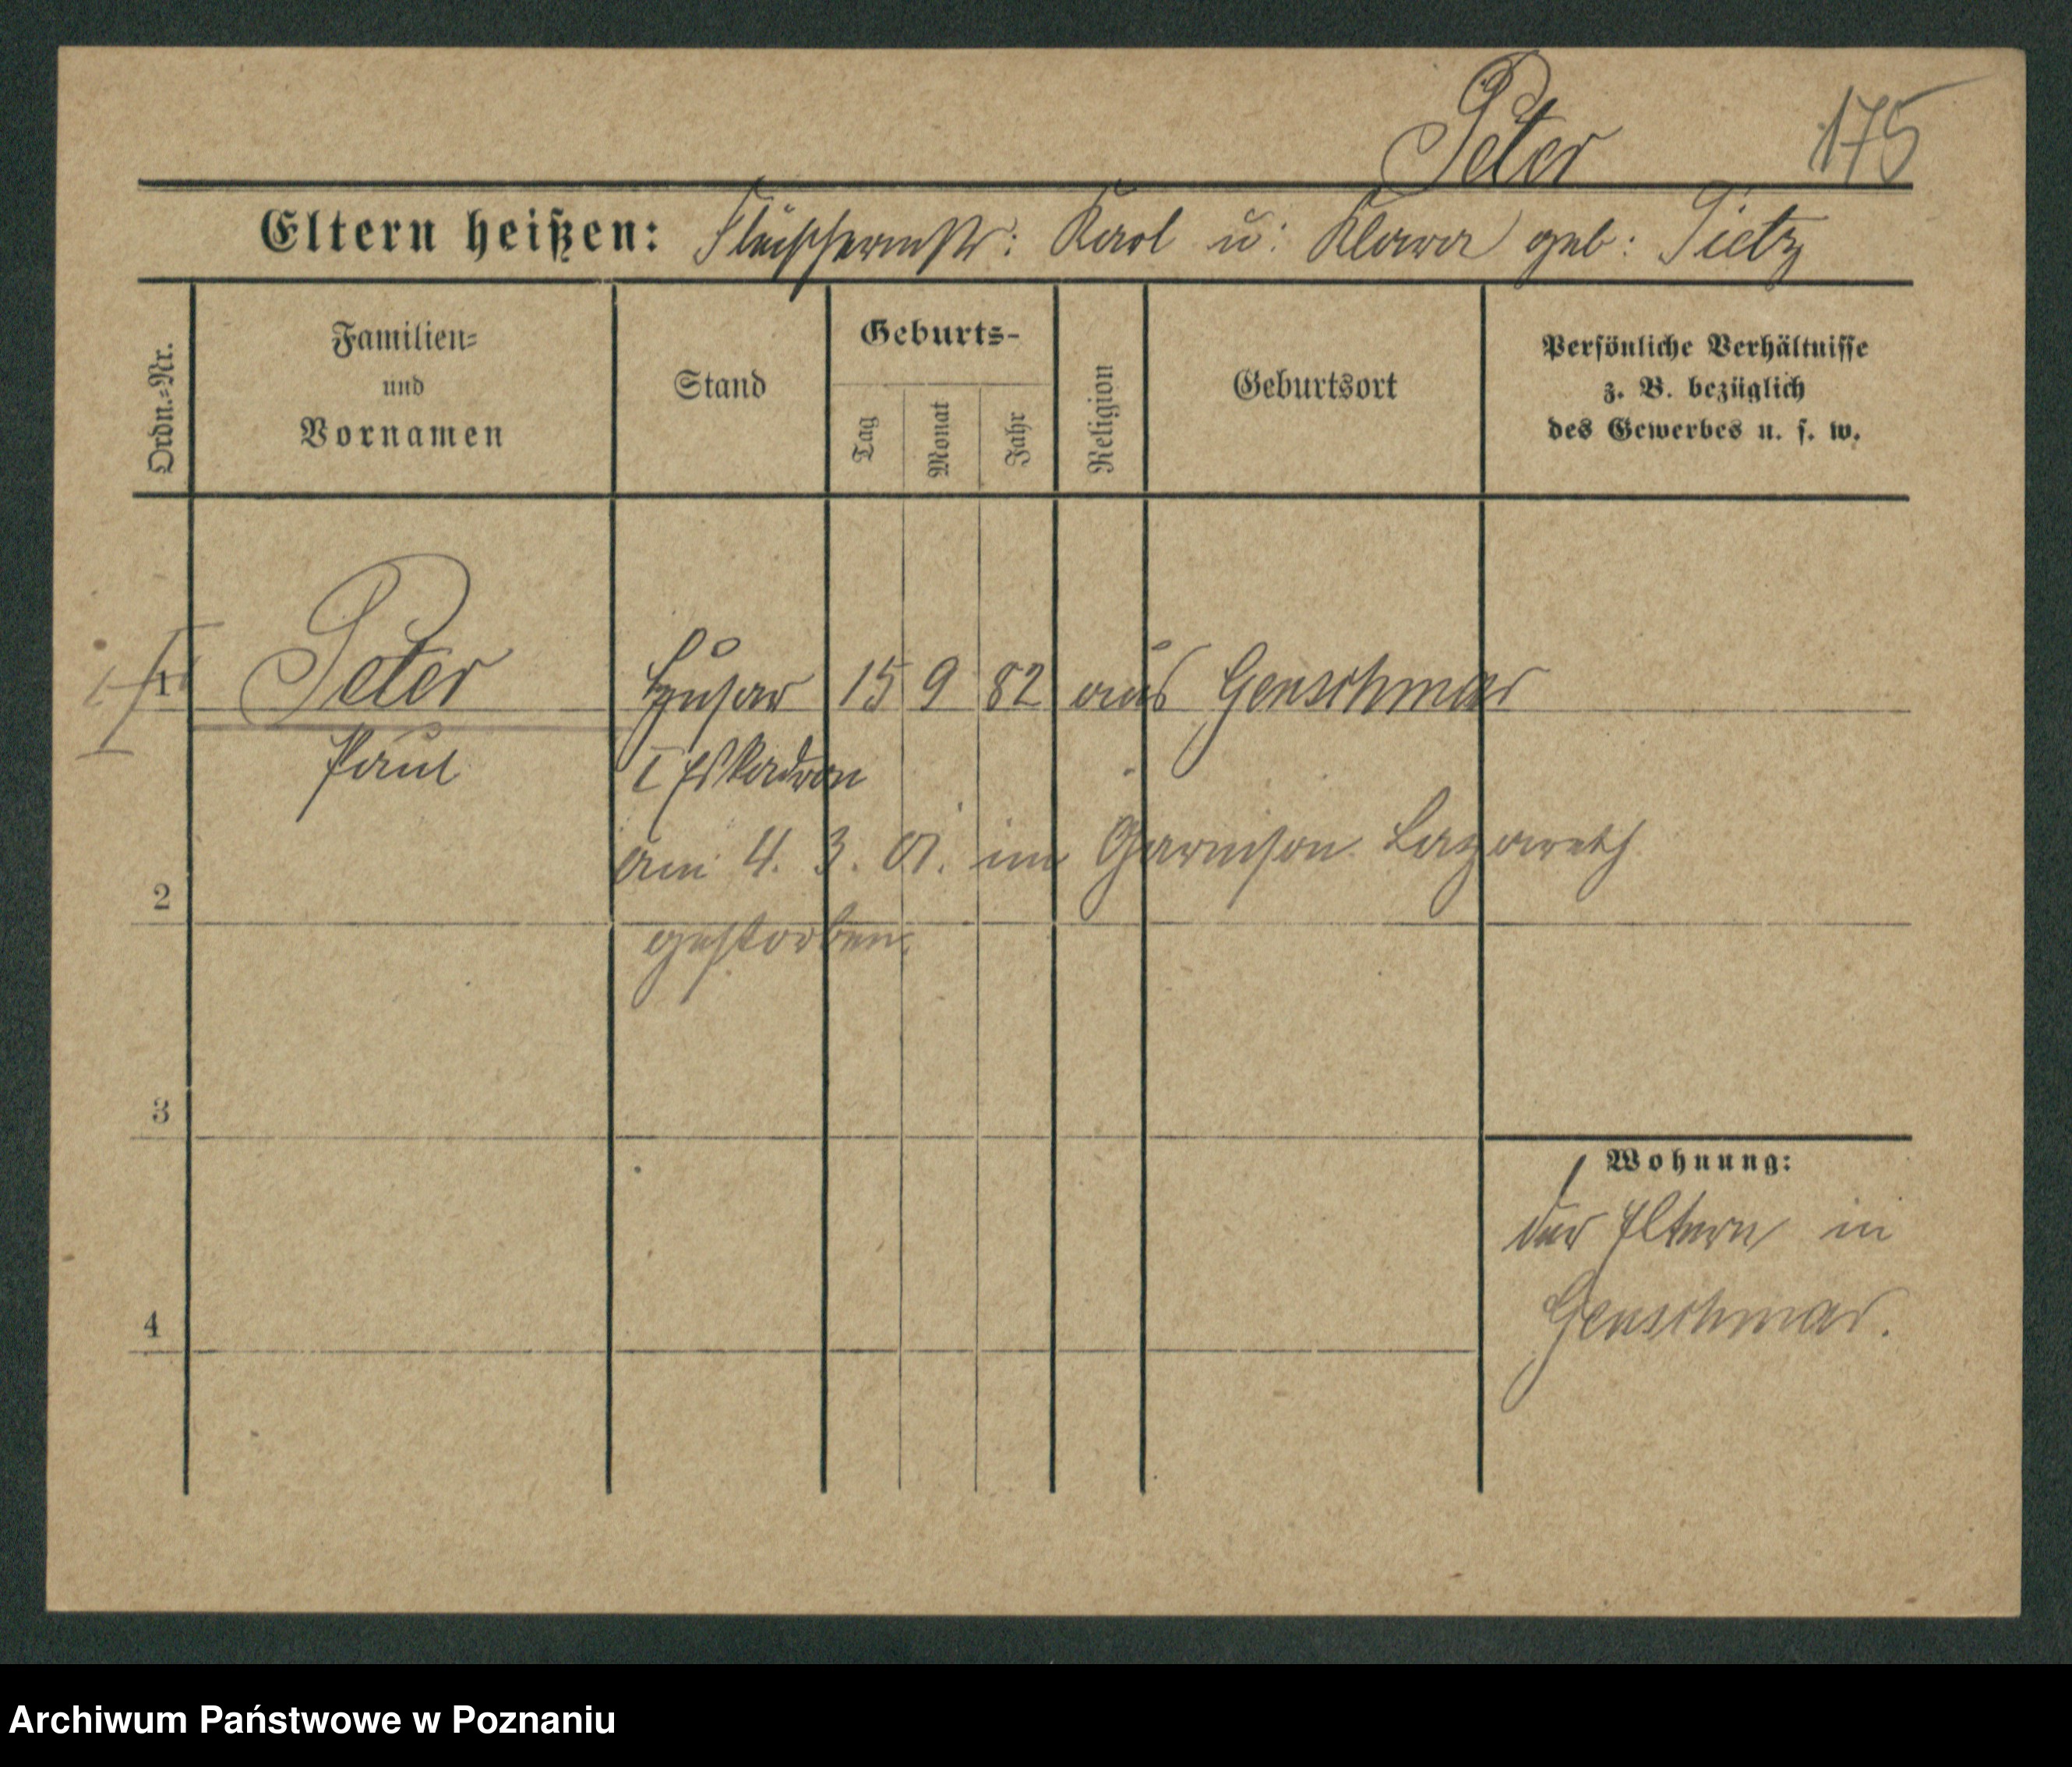 Peter 175
Eltern heißen: Fleischermstr: Karl u: Klara geb: Tietz
Ordn.=Nr.
Familien=
und
Vornamen
Stand
Geburts-
Tag
Monat
Jahr
Religion
Geburtsort
Persönliche Verhältnisse
z. B. bezüglich
des Gewerbes u. s. w.
1 Peter Husar 15 9 82 aus Genschmar
Paul I Eskadron
am 4. 3. 01. im Garnison Lazareth
2
gestorben.
3
Wohnung:
der Eltern in
Genschmar.
4
Archiwum Państwowe w Poznaniu